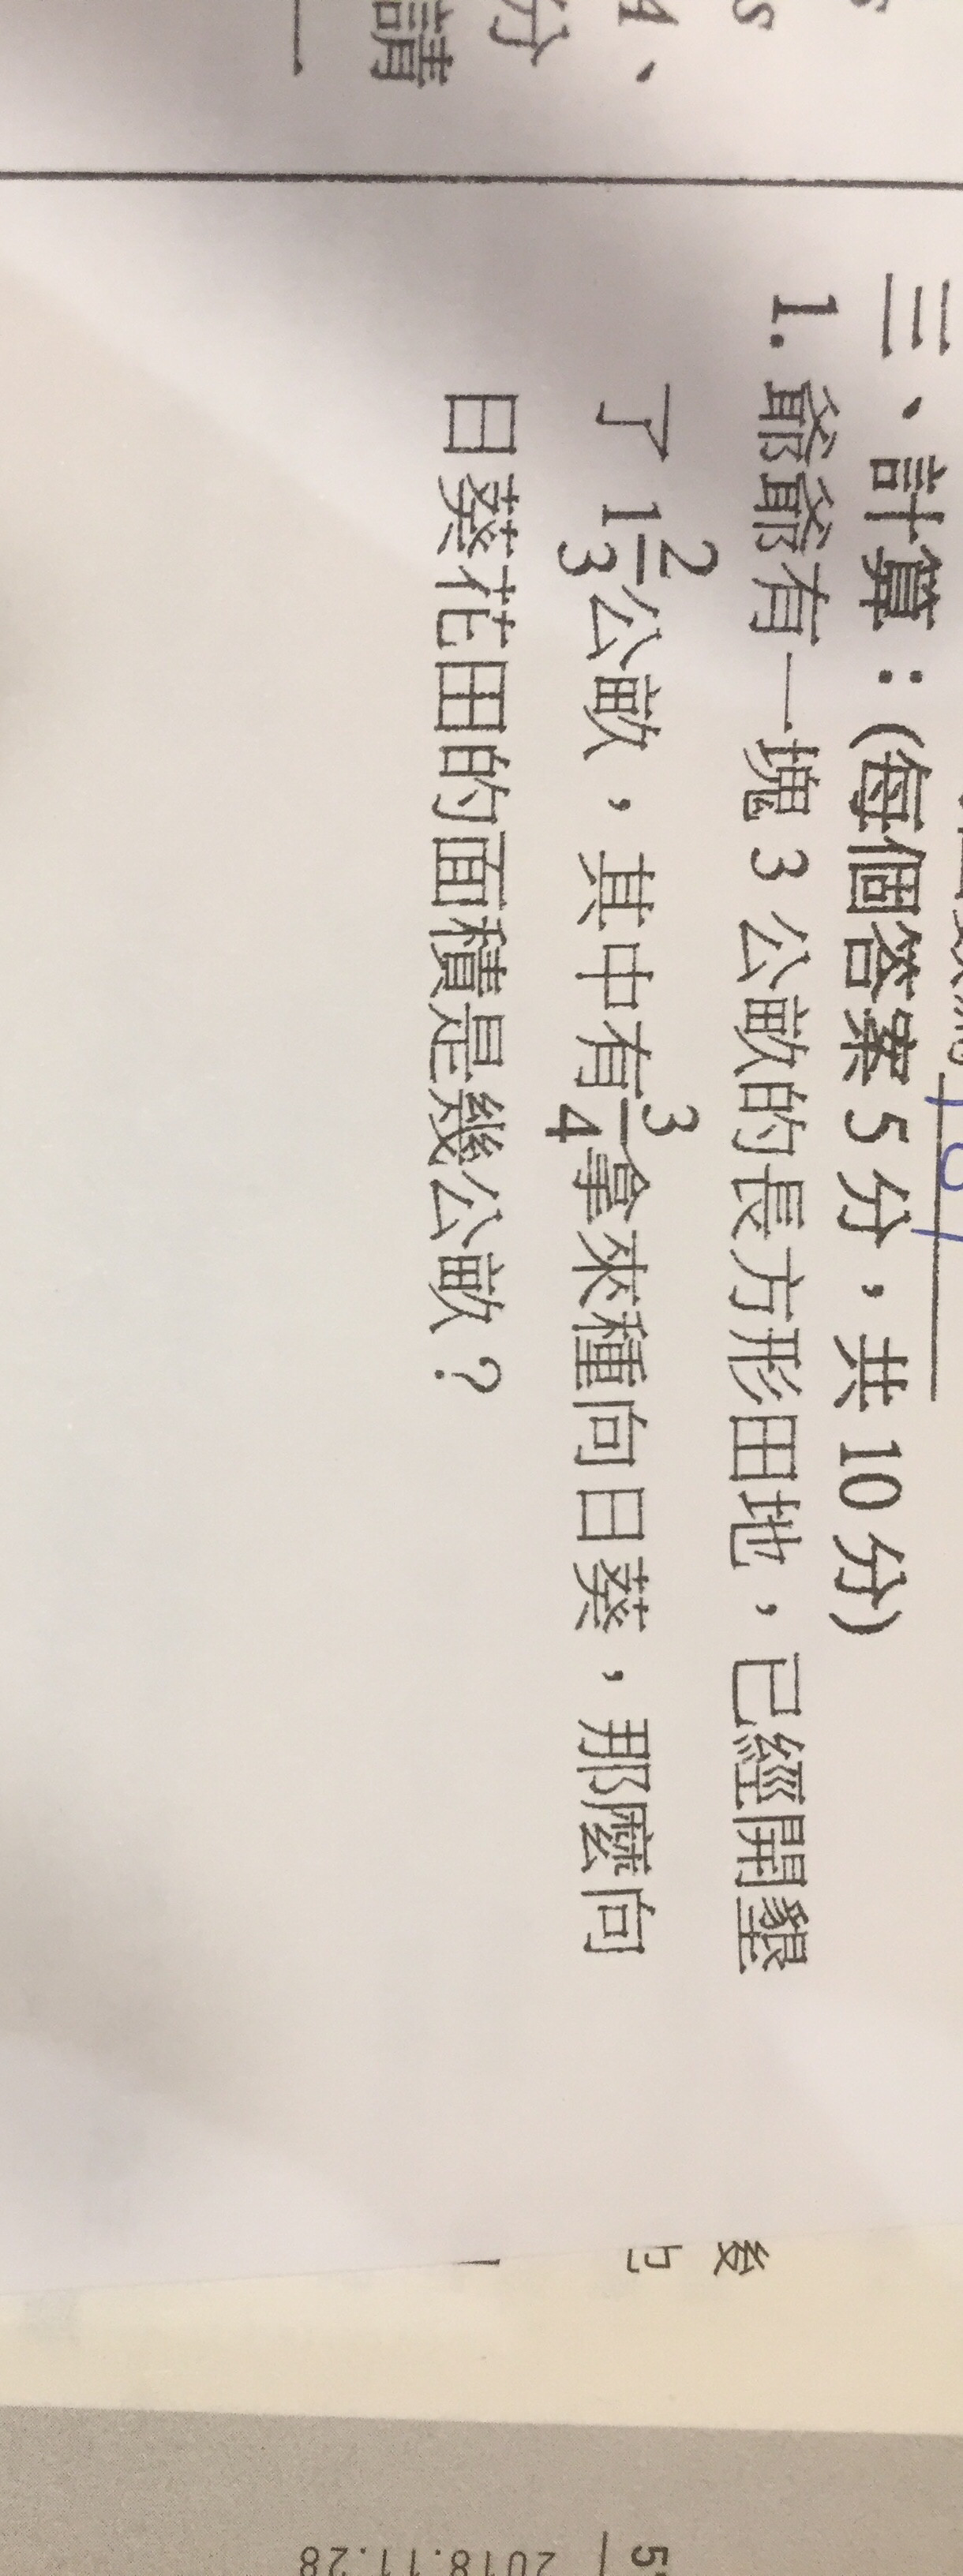 三、計算：(每個答案 5 分，共 10 分)
1. 爺爺有一塊 3 公畝的長方形田地，已經開墾
了 1 2/3 公畝，其中有 3/4 拿來種向日葵，那麼向
日葵花田的面積是幾公畝？
4、
分
請
5 / 2018.11.28